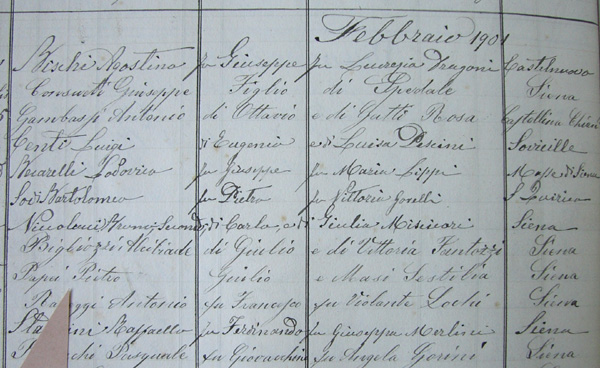 Febbraio 1901
Bischi Agostino fu Giuseppe fu Lucrezia Dragoni Castelnuovo
Giuseppe Figlio di Spedale Siena
Gambassi Antonio di Ottavio e di Gatti Rosa Castellina Chianti
Centi Luigi di Eugenio e di Luisa Pescini Sovicille
Lodovico fu Giuseppe fu Maria Lippi Massa di Siena
Sodi Bartolomeo fu Pietro fu Vittoria Gorelli S Quirico
di Carlo, e di Giulia Misciori Siena
Bigliozzi Alcibiade di Giulio e di Vittoria Fantozzi Siena
Papi Pietro Giulio e Masi Sestilia Siena
Antonio fu Francesco fu Violante Lochi Siena
Raffaello fu Ferdinando fu Giuseppa Merlini Siena
Pasquale fu Giovacchino fu Angela Gorini Siena